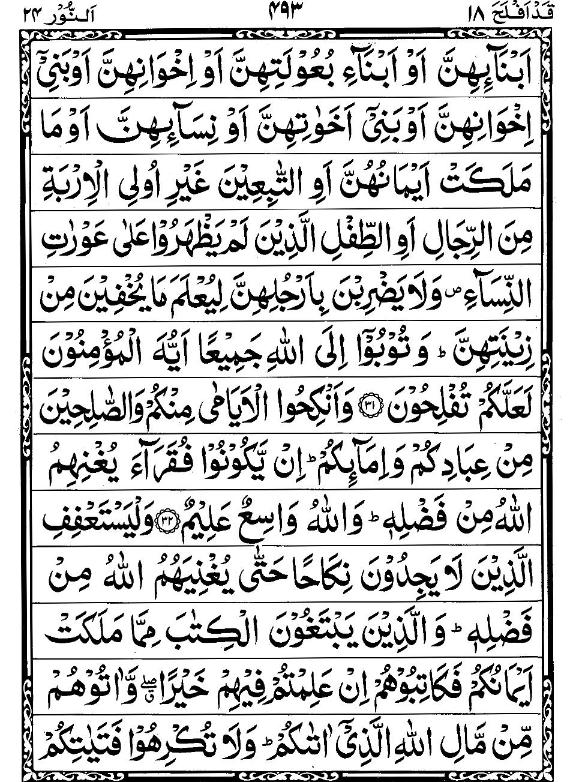 قَدْ اَفْلَحَ ۱۸ ۴۹۳ اَلنُّوْر ۲۴
اَبْنَآىِٕهِنَّ اَوْ اَبْنَآءِ بُعُوْلَتِهِنَّ اَوْ اِخْوَانِهِنَّ اَوْ بَنِیْۤ
اِخْوَانِهِنَّ اَوْ بَنِیْۤ اَخَوٰتِهِنَّ اَوْ نِسَآىِٕهِنَّ اَوْ مَا
مَلَكَتْ اَیْمَانُهُنَّ اَوِ التّٰبِعِیْنَ غَیْرِ اُولِی الْاِرْبَةِ
مِنَ الرِّجَالِ اَوِ الطِّفْلِ الَّذِیْنَ لَمْ یَظْهَرُوْا عَلٰی عَوْرٰتِ
النِّسَآءِ ۪ وَلَا یَضْرِبْنَ بِاَرْجُلِهِنَّ لِیُعْلَمَ مَا یُخْفِیْنَ مِنْ
زِیْنَتِهِنَّ ؕ وَ تُوْبُوْۤا اِلَی اللّٰهِ جَمِیْعًا اَیُّهَ الْمُؤْمِنُوْنَ
لَعَلَّكُمْ تُفْلِحُوْنَ ۳۱ وَاَنْكِحُوا الْاَیَامٰی مِنْكُمْ وَالصّٰلِحِیْنَ
مِنْ عِبَادِكُمْ وَ اِمَآىِٕكُمْ ؕ اِنْ یَّكُوْنُوْا فُقَرَآءَ یُغْنِهِمُ
اللّٰهُ مِنْ فَضْلِهٖ ؕ وَاللّٰهُ وَاسِعٌ عَلِیْمٌ ۳۲ وَلْیَسْتَعْفِفِ
الَّذِیْنَ لَا یَجِدُوْنَ نِكَاحًا حَتّٰی یُغْنِیَهُمُ اللّٰهُ مِنْ
فَضْلِهٖ ؕ وَ الَّذِیْنَ یَبْتَغُوْنَ الْكِتٰبَ مِمَّا مَلَكَتْ
اَیْمَانُكُمْ فَكَاتِبُوْهُمْ اِنْ عَلِمْتُمْ فِیْهِمْ خَیْرًا ۖۗ وَّاٰتُوْهُمْ
مِّنْ مَّالِ اللّٰهِ الَّذِیْۤ اٰتٰىكُمْ ؕ وَلَا تُكْرِهُوْا فَتَیٰتِكُمْ